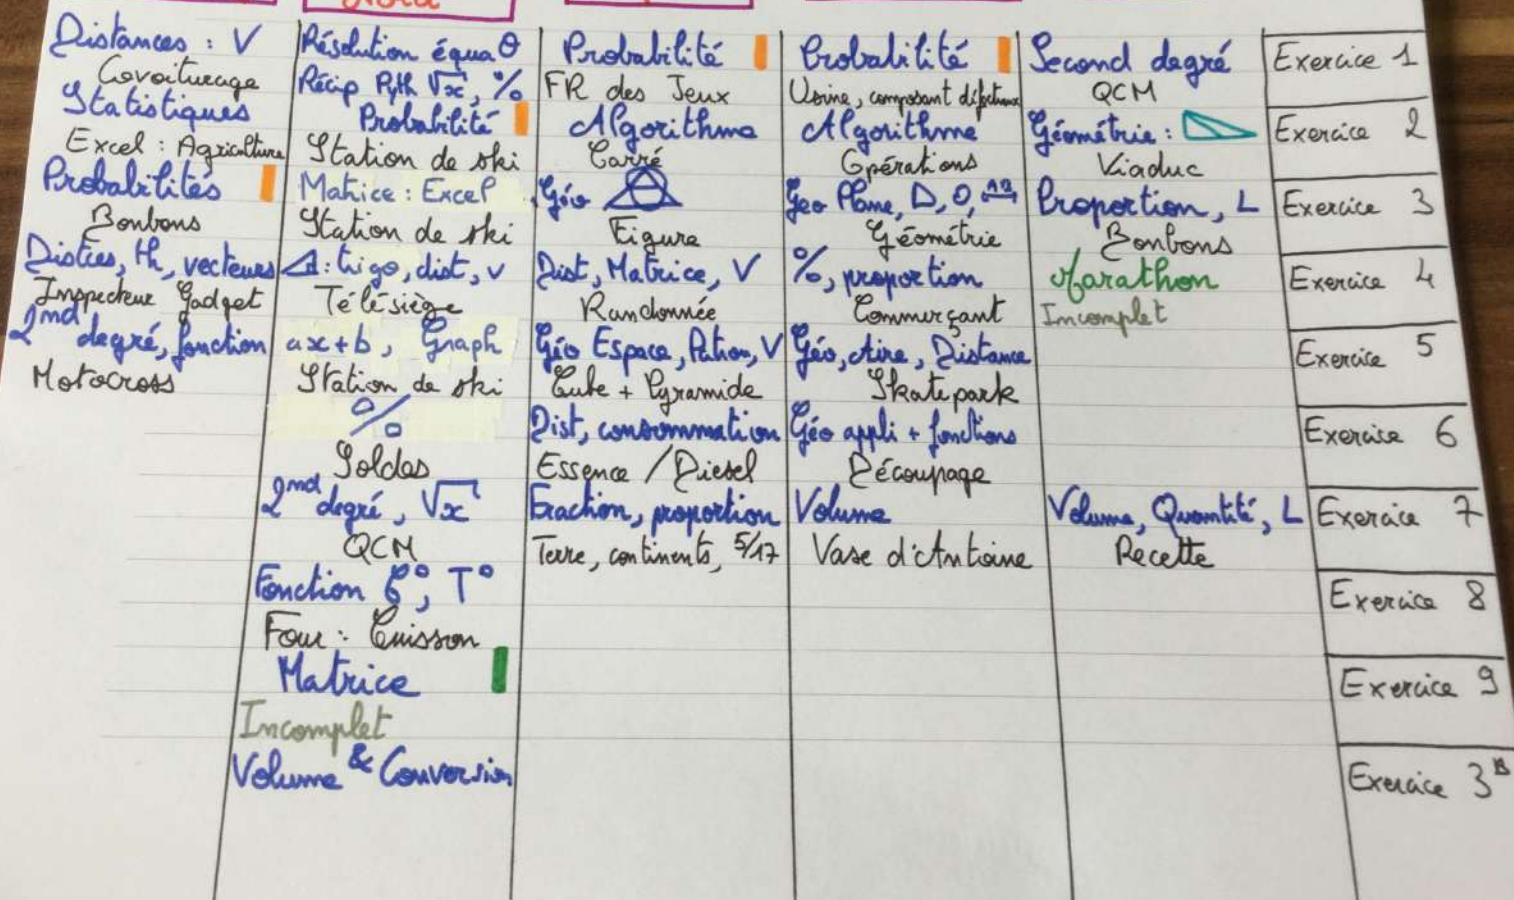 Distances : V
Covoiturage
Statistiques
Excel : Agriculture
Probabilités
Bonbons
Distces, th, vecteurs
Inspecteur Gadget
2nd degré, fonction
Motocross
Résolution équa θ
Récip Pyth √x, %
Probabilité
Station de ski
Matrice : Excel
Station de ski
: trigo, dist, v
Télésiège
ax+b, Graph
Station de ski
%
Soldes
2nd degré, √x
QCM
Fonction C°, T°
Four : Cuisson
Matrice
Incomplet
Volume & Conversion
Probabilité
FR des Jeux
Algorithme
Carré
Géo
Figure
Dist, Matrice, V
Randonnée
Géo Espace, Patron, V
Cube + Pyramide
Dist, consommation
Essence / Diesel
Fraction, proportion
Terre, continents, 5/17
Probabilité
Usine, composant défectueux
Algorithme
Opérations
Geo Plane, D, O,
Géométrie
%, proportion
Commerçant
Géo, Aire, Distance
Skatepark
Géo appli + fonctions
Découpage
Volume
Vase d'Antoine
Second degré
QCM
Géométrie :
Viaduc
Proportion, L
Bonbons
Marathon
Incomplet
Volume, Quantité, L
Recette
Exercice 1
Exercice 2
Exercice 3
Exercice 4
Exercice 5
Exercice 6
Exercice 7
Exercice 8
Exercice 9
Exercice 3B